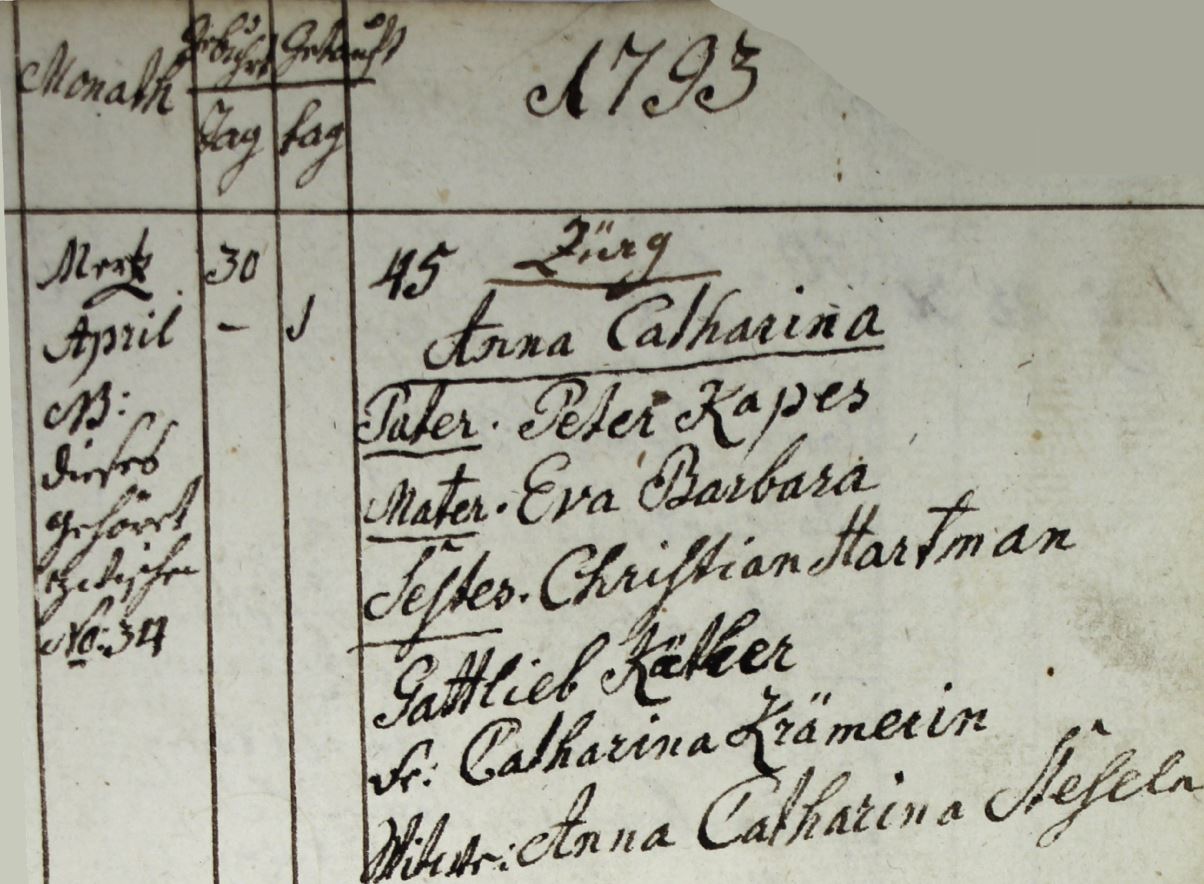 Monath Gebuhrt Getauft 1793
Tag tag
Mertz 30 45 Zürg
April - 1 Anna Catharina
NB: Pater. Peter Kapes
dieses
gehöret Mater. Eva Barbara
zwischen Testes. Christian Hartman
No: 34
Gottlieb Käther
Fr: Catharina Krämerin
Witwe: Anna Catharina